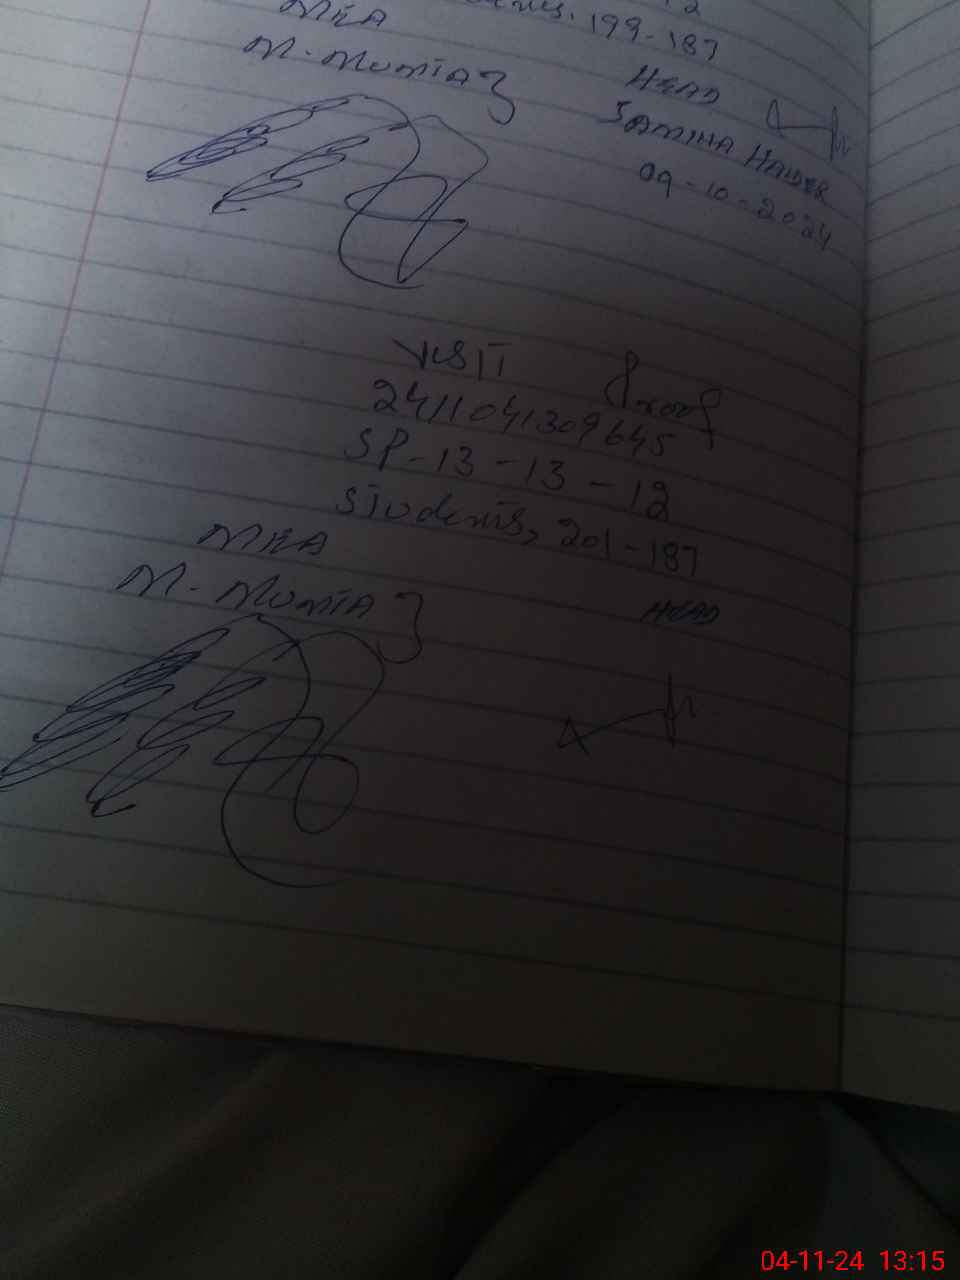 199-187
MEA
M. Mumtaz
HEAD
SAMINA HAIDER
09-10-2024
VISIT Proof
241104130 9645
SP-13-13-12
Students, 201-187
MEA
M. Mumtaz
HEAD
04-11-24 13:15